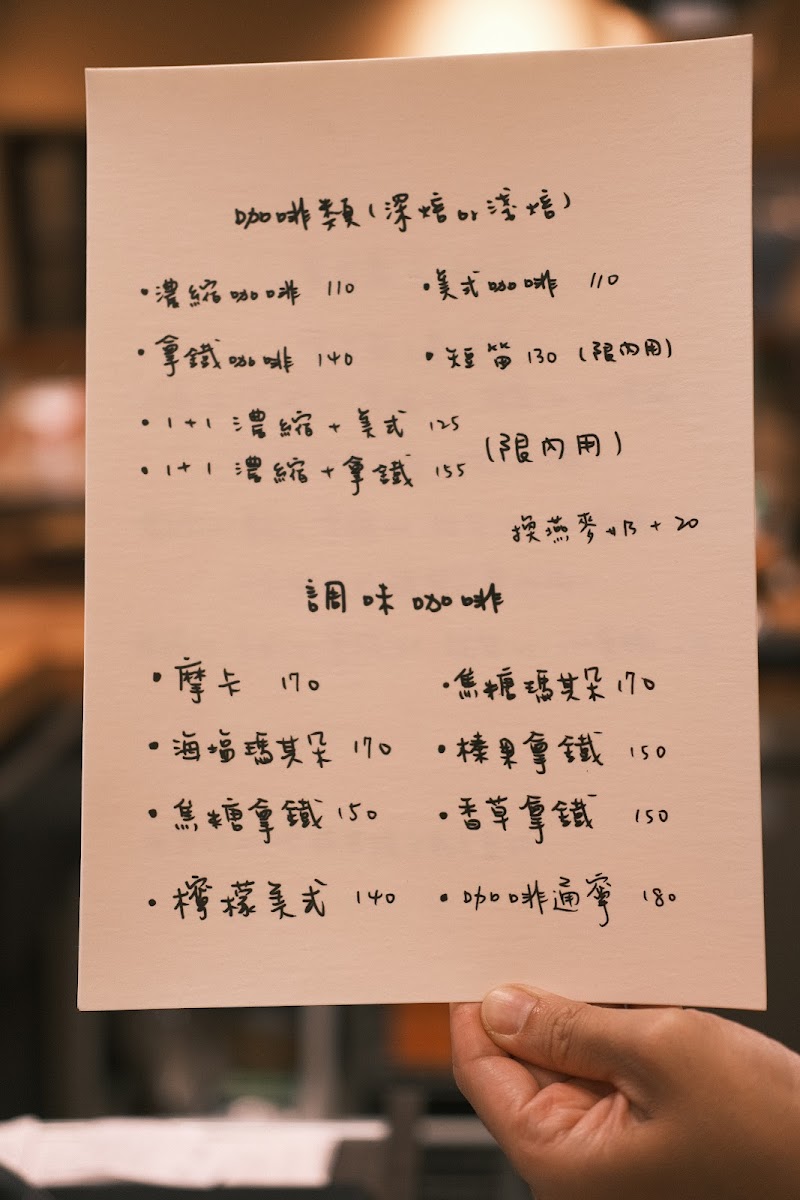 咖啡類(深焙or淺焙)
•濃縮咖啡 110 •美式咖啡 110
•拿鐵咖啡 140 •短笛 130 (限內用)
•1+1 濃縮+美式 125
(限內用)
•1+1 濃縮+拿鐵 155
換燕麥奶+20
調味咖啡
•摩卡 170 •焦糖瑪其朵 170
•海塩瑪其朵 170 •榛果拿鐵 150
•焦糖拿鐵 150 •香草拿鐵 150
•檸檬美式 140 •咖啡通寧 180